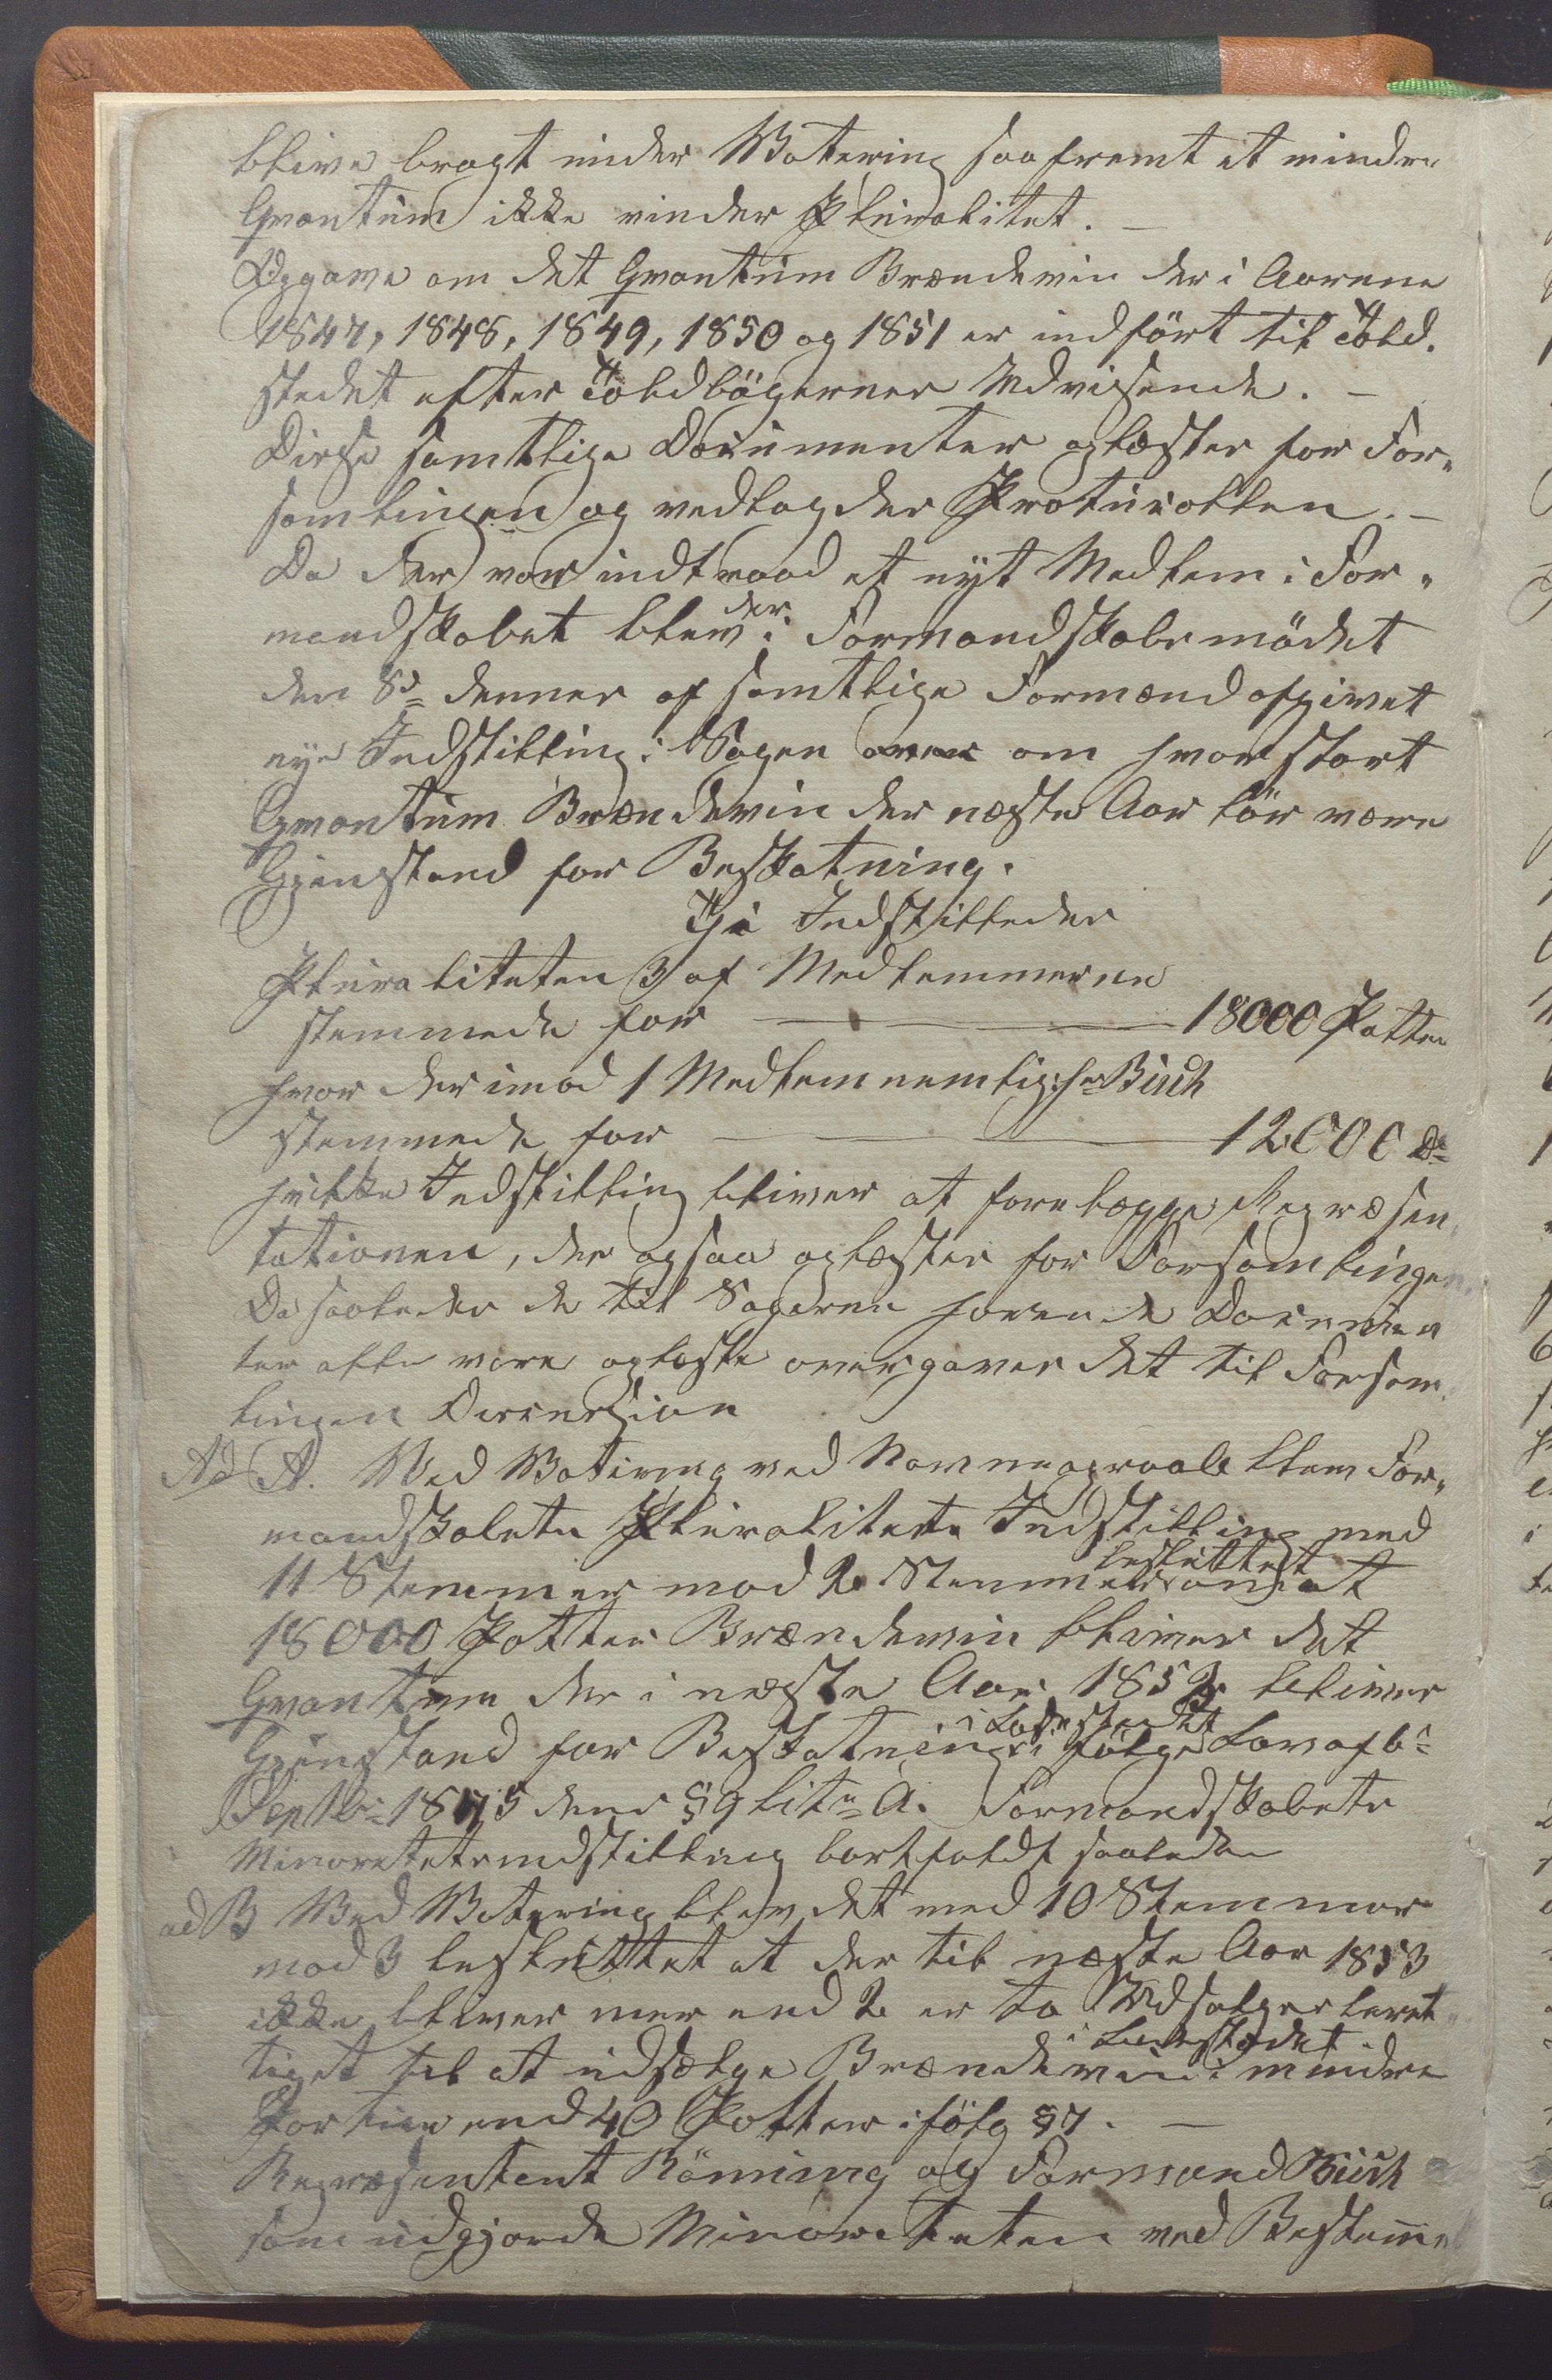 blive bragt under Votering saafremt et mindre
Qvantum ikke vinder Pluralitet. —
Opgave om det Qvantum Brændeviin der i Aarene
1847, 1848, 1849, 1850 og 1851 er indført til Told-
stedet efter Toldbøgernes Udvisende. —
Disse samtlige Documenter oplæstes for For-
samlingen og vedlagdes Protocollen. —
Da der var indtraad et nyt Medlem i For-
mandskabet blev der i Formandskabsmødet
den 8de dennes af samtlige Formænd afgivet
nye Indstilling i Sagen om hvor stort
Qvantum Brændeviin der næste Aar bør være
Gjenstand for Beskatning.
Thi Indstilledes
Pluraliteten 3 af Medlemmerne
stemmede for — 18000 Potter
hvor derimod 1 Medlem nemlig: Hr Buch
stemmede for — 12000 do
hvilke Indstilling bliver at forelægge Repræsen-
tationen, der ogsaa oplæstes for Forsamlingen.
Da saaledes de til Sagerne hørende Documen
ter alle vare oplæste overgaves det til Forsam-
lingen Discussion
Ad A. Ved Votering ved Navneopraab blev For-
mandskabets Pluralitets Indstilling med
11 Stemmer mod 2 Stemmer besluttet at
18000 Potter Brændeviin bliver det
Qvantum der i næste Aar 1853 bliver
Gjenstand for Beskatning i Ladestedet i følge Lov af 6te
Septbr 1845 dens § 9 Litr A. Formandskabets
Minoritetsindstilling bortfaldt saaledes
ad B Ved Votering blev det med 10 Stemmer
mod 3 besluttet at der til næste Aar 1853
ikke bliver mer end 2 er to Udsalgs beret-
tiget til at udsælge Brændeviin i Ladestedet i mindre
Partier end 40 Potter ifølg § 7. —
Repræsentant Rönning og Formand Buch
som udgjorde Minoriteten ved Bestemmel